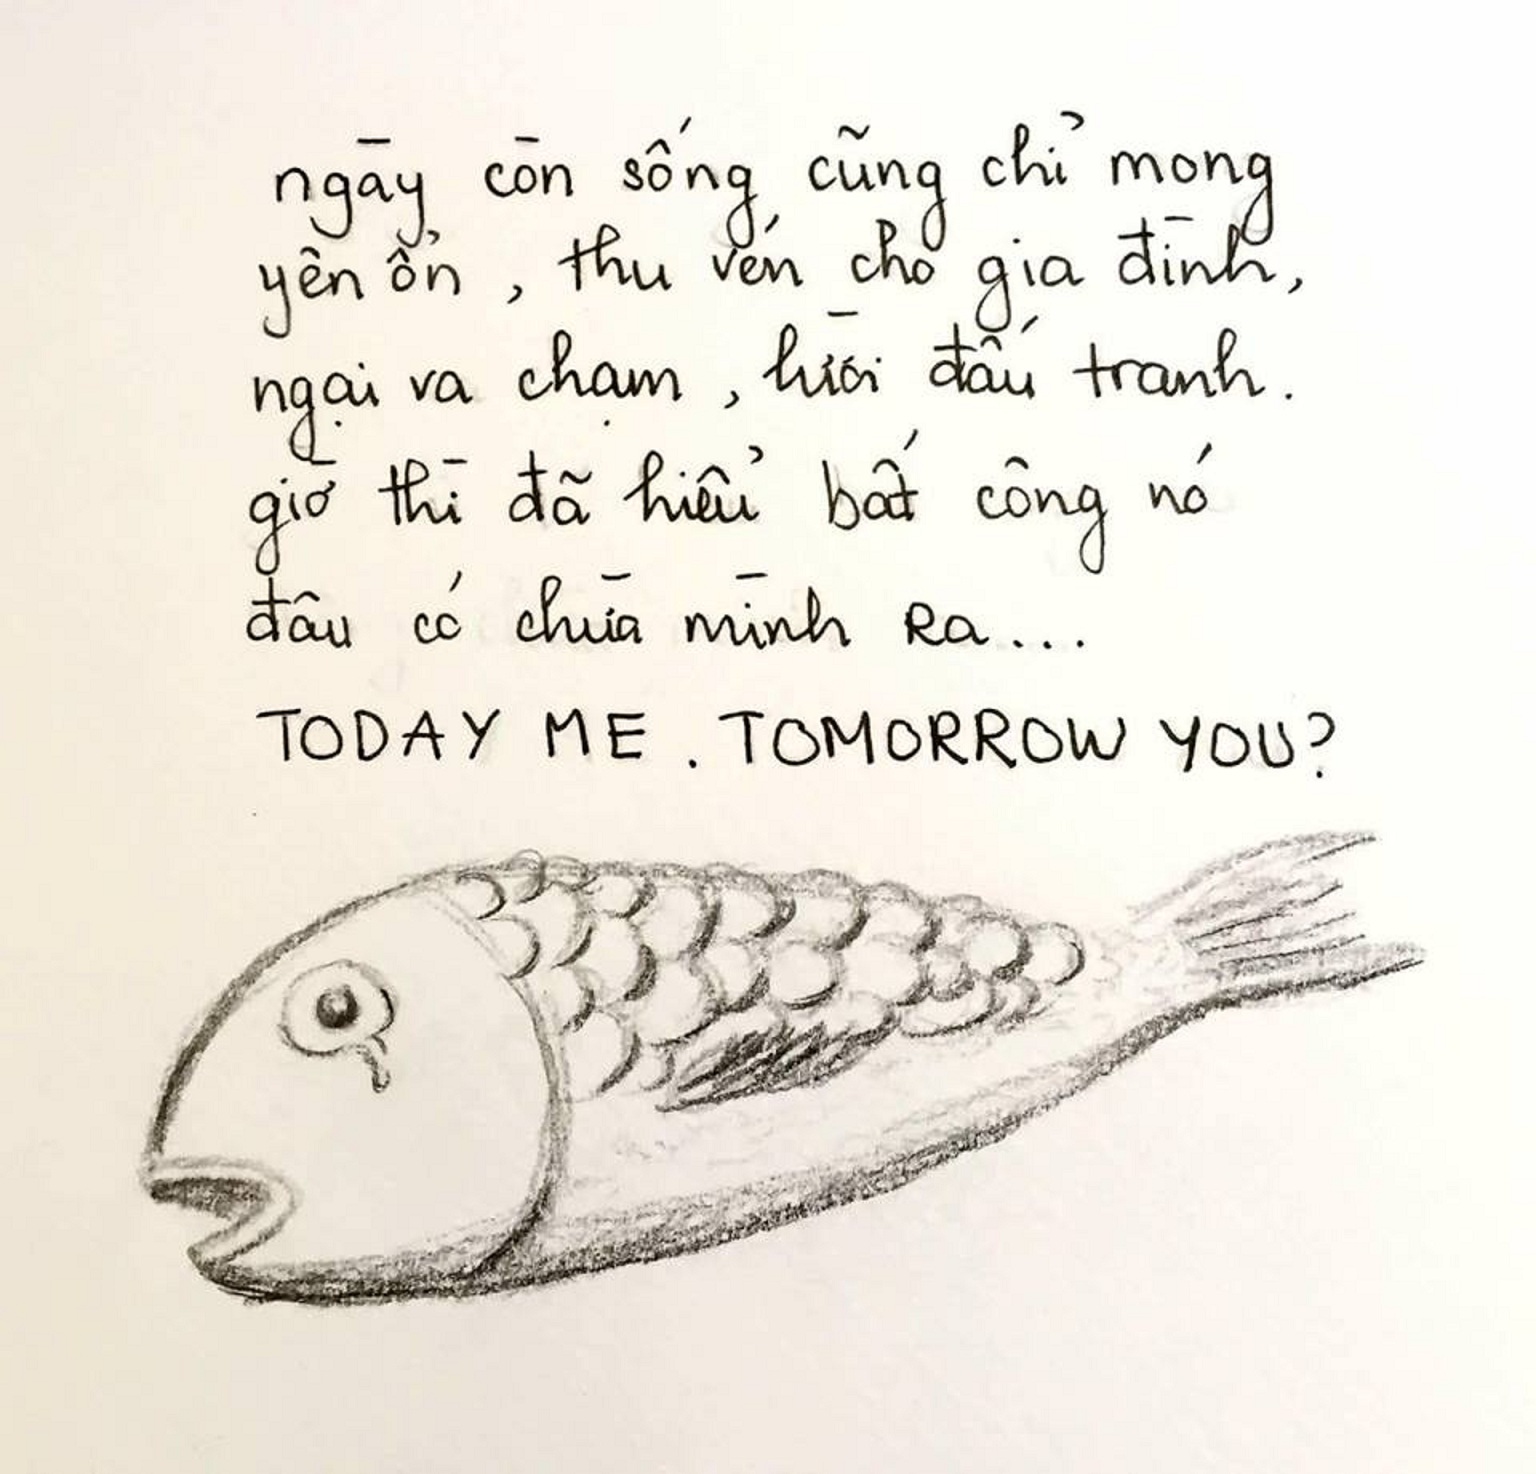 ngày còn sống cũng chỉ mong
yên ổn, thu vén cho gia đình,
ngại va chạm, lười đấu tranh.
giờ thì đã hiểu bất công nó
đâu có chừa mình Ra...
TODAY ME. TOMORROW YOU?